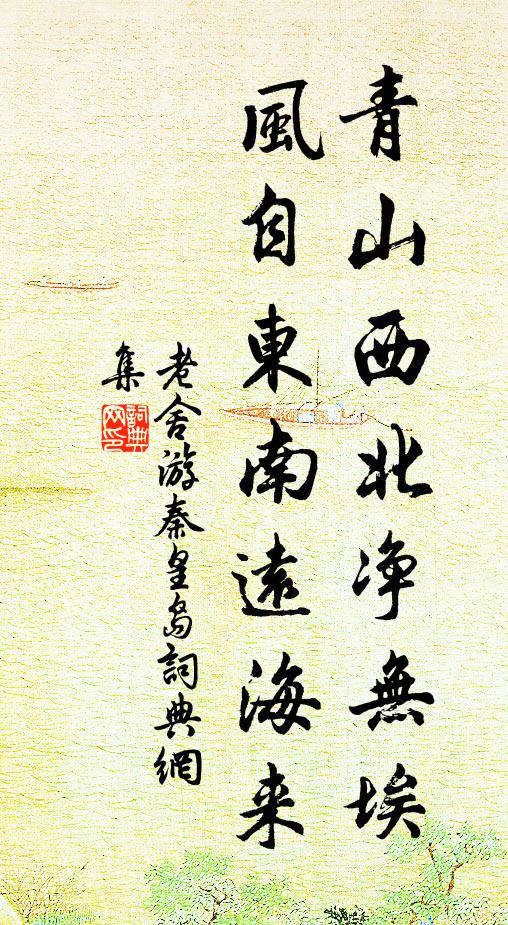 青山西北净無埃
風自東南遠海来
老舍游秦皇島詞典網
集
詞典
网印